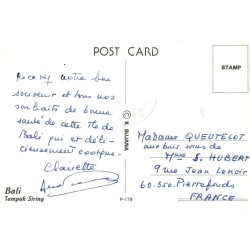 POST CARD
STAMP
Recevez notre bon
souvenir et tous nos
souhaits de bonne
santé de cette Ile de
Bali qui est déli-
cieusement exotique.
Clairette
© K. SUJANA
Madame QUEUTELOT
aux bons soins de
Mme S. HUBERT
9 rue Jean Lenoir
60.350. Pierrefonds
FRANCE
Bali
Tampak Siring
P-179